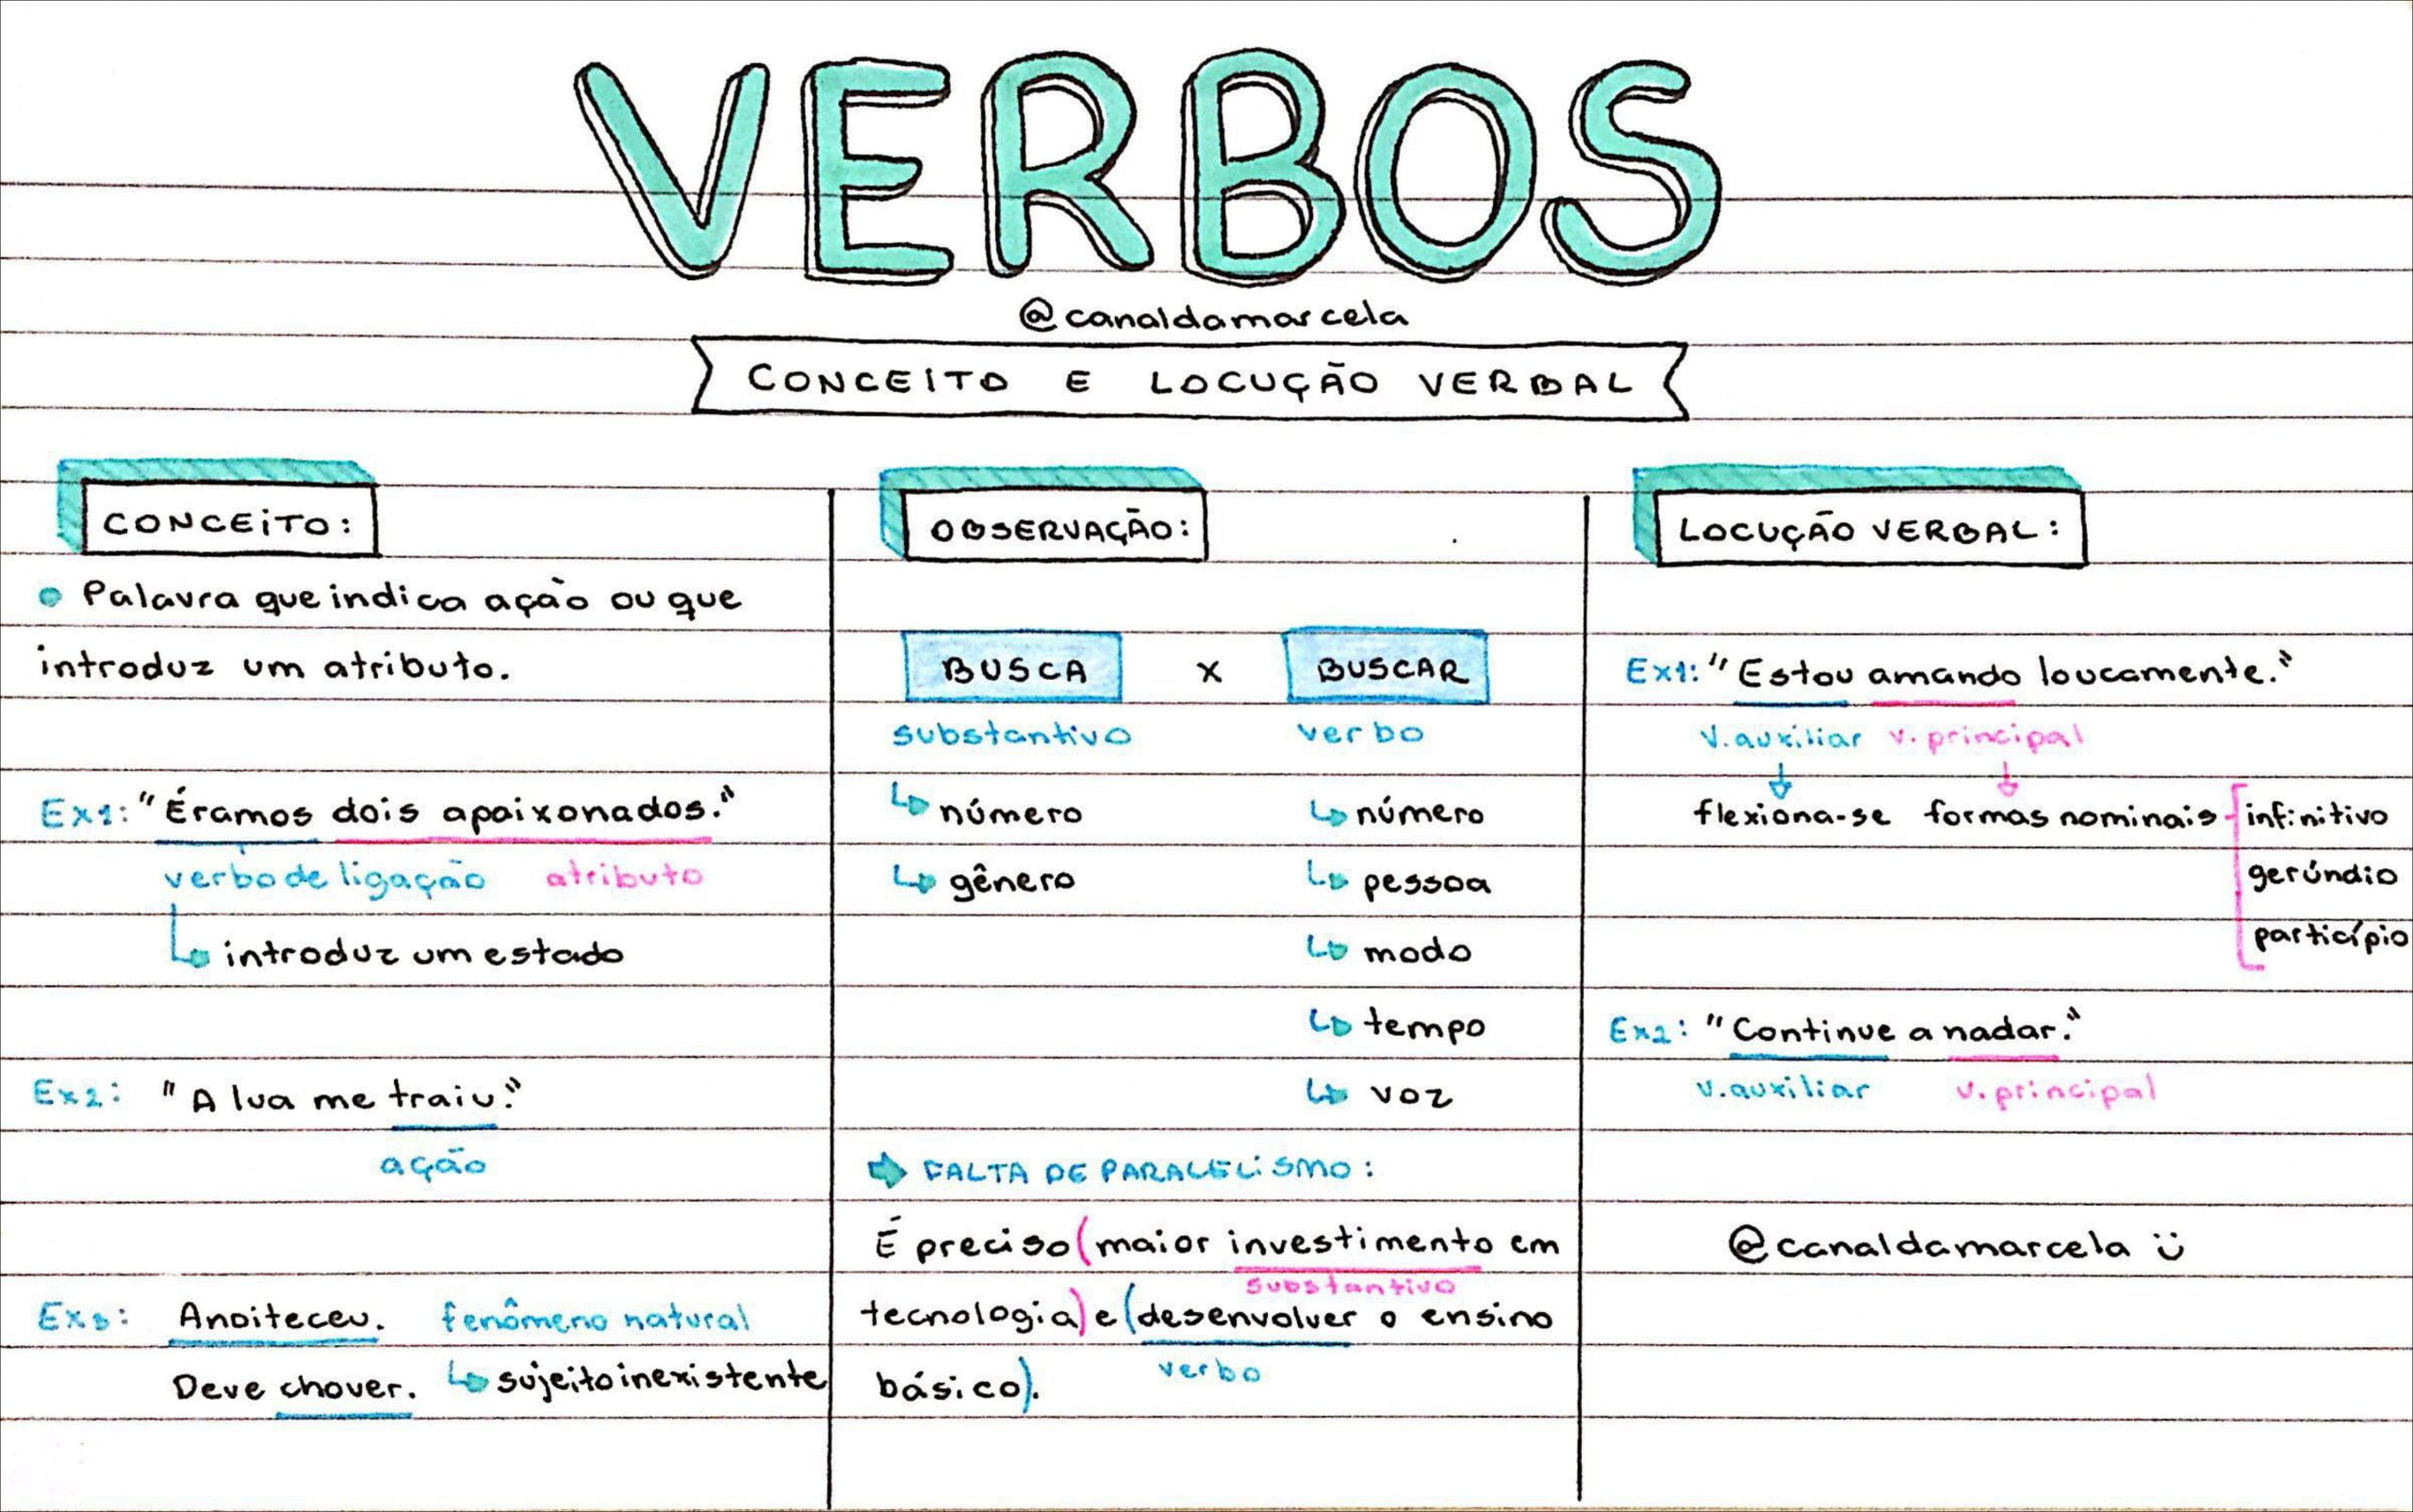 VERBOS
@canaldamarcela
CONCEITO E LOCUÇÃO VERBAL
CONCEITO:
Palavra que indica ação ou que
introduz um atributo.
Ex1: "Éramos dois apaixonados."
verbo de ligação atributo
introduz um estado
Ex2: "A lua me traiu."
ação
Ex3: Anoiteceu. fenômeno natural
Deve chover. sujeito inexistente
OBSERVAÇÃO:
BUSCA x BUSCAR
substantivo verbo
número número
gênero pessoa
modo
tempo
voz
FALTA DE PARALELISMO:
É preciso (maior investimento em
substantivo
tecnologia) e (desenvolver o ensino
verbo
básico).
LOCUÇÃO VERBAL:
Ex1: "Estou amando loucamente."
v.auxiliar v.principal
flexiona-se formas nominais infinitivo
gerúndio
particípio
Ex2: "Continue a nadar."
v.auxiliar v.principal
@canaldamarcela ü